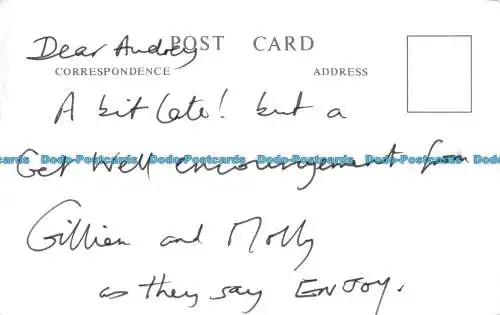 POST CARD
Dear Audrey
CORRESPONDENCE ADDRESS
A bit late! but a
Get Well encouragement from
Dodo-Postcards Dodo-Postcards Dodo-Postcards Dodo-Postcards Dodo-Postcards
Gillian and Molly
as they say ENJOY.